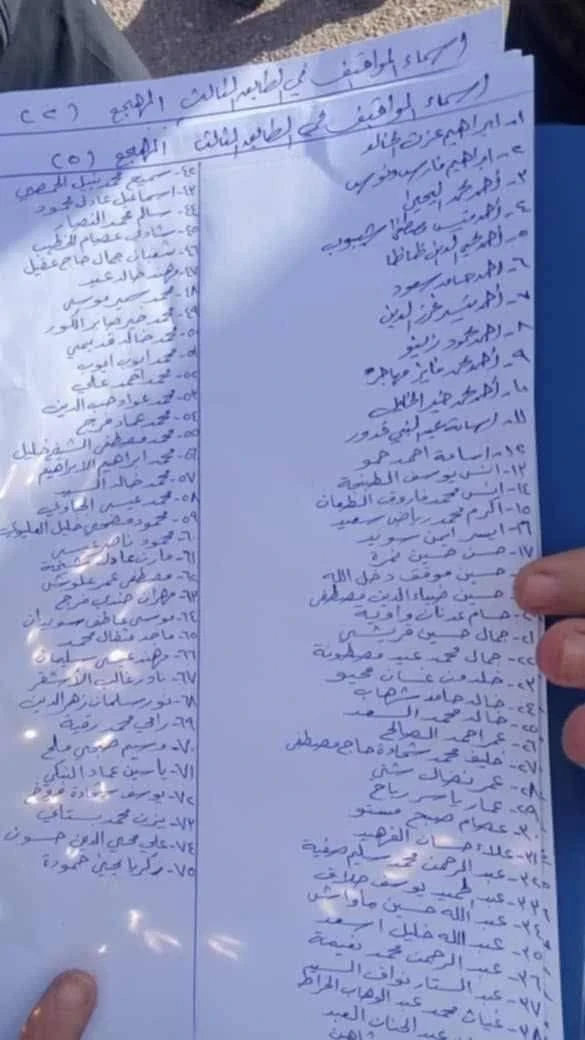 اسماء المواقيف في الطابق الثالث المهجع (٢)
اسماء المواقيف في الطابق الثالث المهجع (٥)
١- ابراهيم عزت خالد
٢- ابراهيم فارس ونوس
٣- أحمد محمد اليحيى
٤- أحمد منيب مصطفى شبوب
٥- أحمد محي الدين ظاظا
٦- احمد حامد سعود
٧- أحمد عز الدين
٨- احمد محمود
٩- أحمد محمد فايز مهاجر
١٠- أحمد محمد خير الخليل
١١- عبد الغني قدور
١٢- اسامة احمد حمو
١٣- انس يوسف
١٤- انس محمد فاروق الطحان
١٥- اكرم محمد رياض سعيد
١٦- ايسر ايمن سويد
١٧- حسن حسين نمرة
حسين موفق دخل الله
حسين ضياء الدين مصطفى
حسام عدنان
جمال حسين قريشي
٢٢- جمال محمد عيد
٢٣- خلدون غسان محيو
٢٤- خالد حامد شهاب
٢٥- خالد محمد السعد
٢٦- عمر احمد الصالح
٢٧- خليف محمد شحادة حاج مصطفى
٢٨- عمر نضال
٢٩- عمار ياسر رباح
٣٠- عصام صبح
٣١- علاء حسان الفرهيد
٣٢- عبد الرحمن محمد سليم صفية
٣٣- عبد الحميد يوسف حلاق
٣٤- عبد الله حسين
٣٥- عبد الله خليل اسعد
٣٦- عبد الرحمن محمد نعيمة
٣٧- عبد الستار نواف السيد
٣٨- غياث محمد عبد الوهاب الخراط
عبد الحنان العبد
شاهين
٤٢- سميح محمد نبيل الحمصي
٤٣- اسماعيل عادل محمود
٤٤- سالم محمد النصار
٤٥- شادي عصام الخطيب
٤٦- شعبان جمال حاج عقيل
٤٧- مهند خالد عيد
٤٨- محمد سمير موسى
٤٩- محمد خير صابر الكور
٥٠- محمد خالد قديمي
٥١- محمد ايوب ايوب
٥٢- محمد احمد علي
٥٣- محمد عواد حب الدين
٥٤- محمد عماد فرج
٥٥- محمد مصطفى الشيخ خليل
٥٦- محمد ابراهيم الابراهيم
٥٧- محمد خالد السيد
٥٨- محمد عيسى الحاوي
٥٩- محمود مصطفى خليل
٦٠- محمود ناصر عيسى
٦١- مازن عادل
٦٢- مصطفى عمر علوش
٦٣- مهران حندي فرج
٦٤- موسى عاطف سويدان
٦٥- ماجد نضال محمد
٦٦- مهند عيسى سليمان
٦٧- نادر غالب الأشقر
٦٨- نور سلمان زهر الدين
٦٩- رامي محمد رقية
٧٠- وسيم صبحي ملح
٧١- ياسين عماد النبكي
٧٢- يوسف شحادة
٧٣- يزن محمد بستاني
٧٤- علي محي الدين حسون
٧٥- زكريا يحيى حمودة